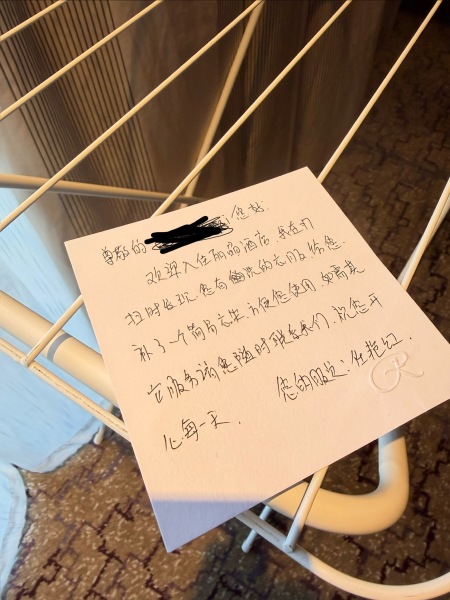 尊敬的 您好:
欢迎入住丽晶酒店,我在打
扫时发现您有 洗的衣服,给您
补了一个简易衣架,方便您使用,如需其
它服务请您随时联系我们,祝您开
心每一天. 您的服务员:任艳红.
R